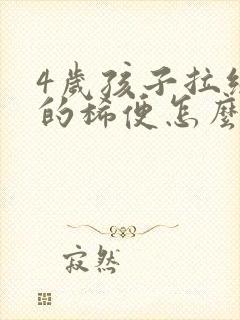 4歲孩子拉綠
的稀便怎麼
寂然